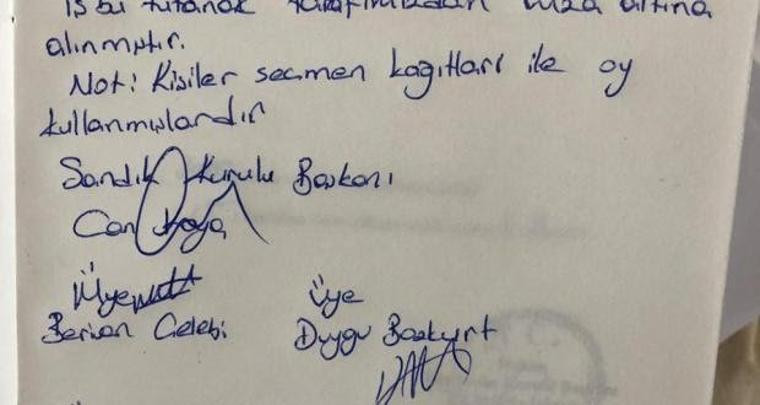 iş bu tutanak tarafımızdan imza altına
alınmıştır.
Not: Kişiler seçmen kağıtları ile oy
kullanmışlardır
Sandık Kurulu Başkanı
Can Kaya
Üye
Üye
Berivan Çelebi
Duygu Bozkurt